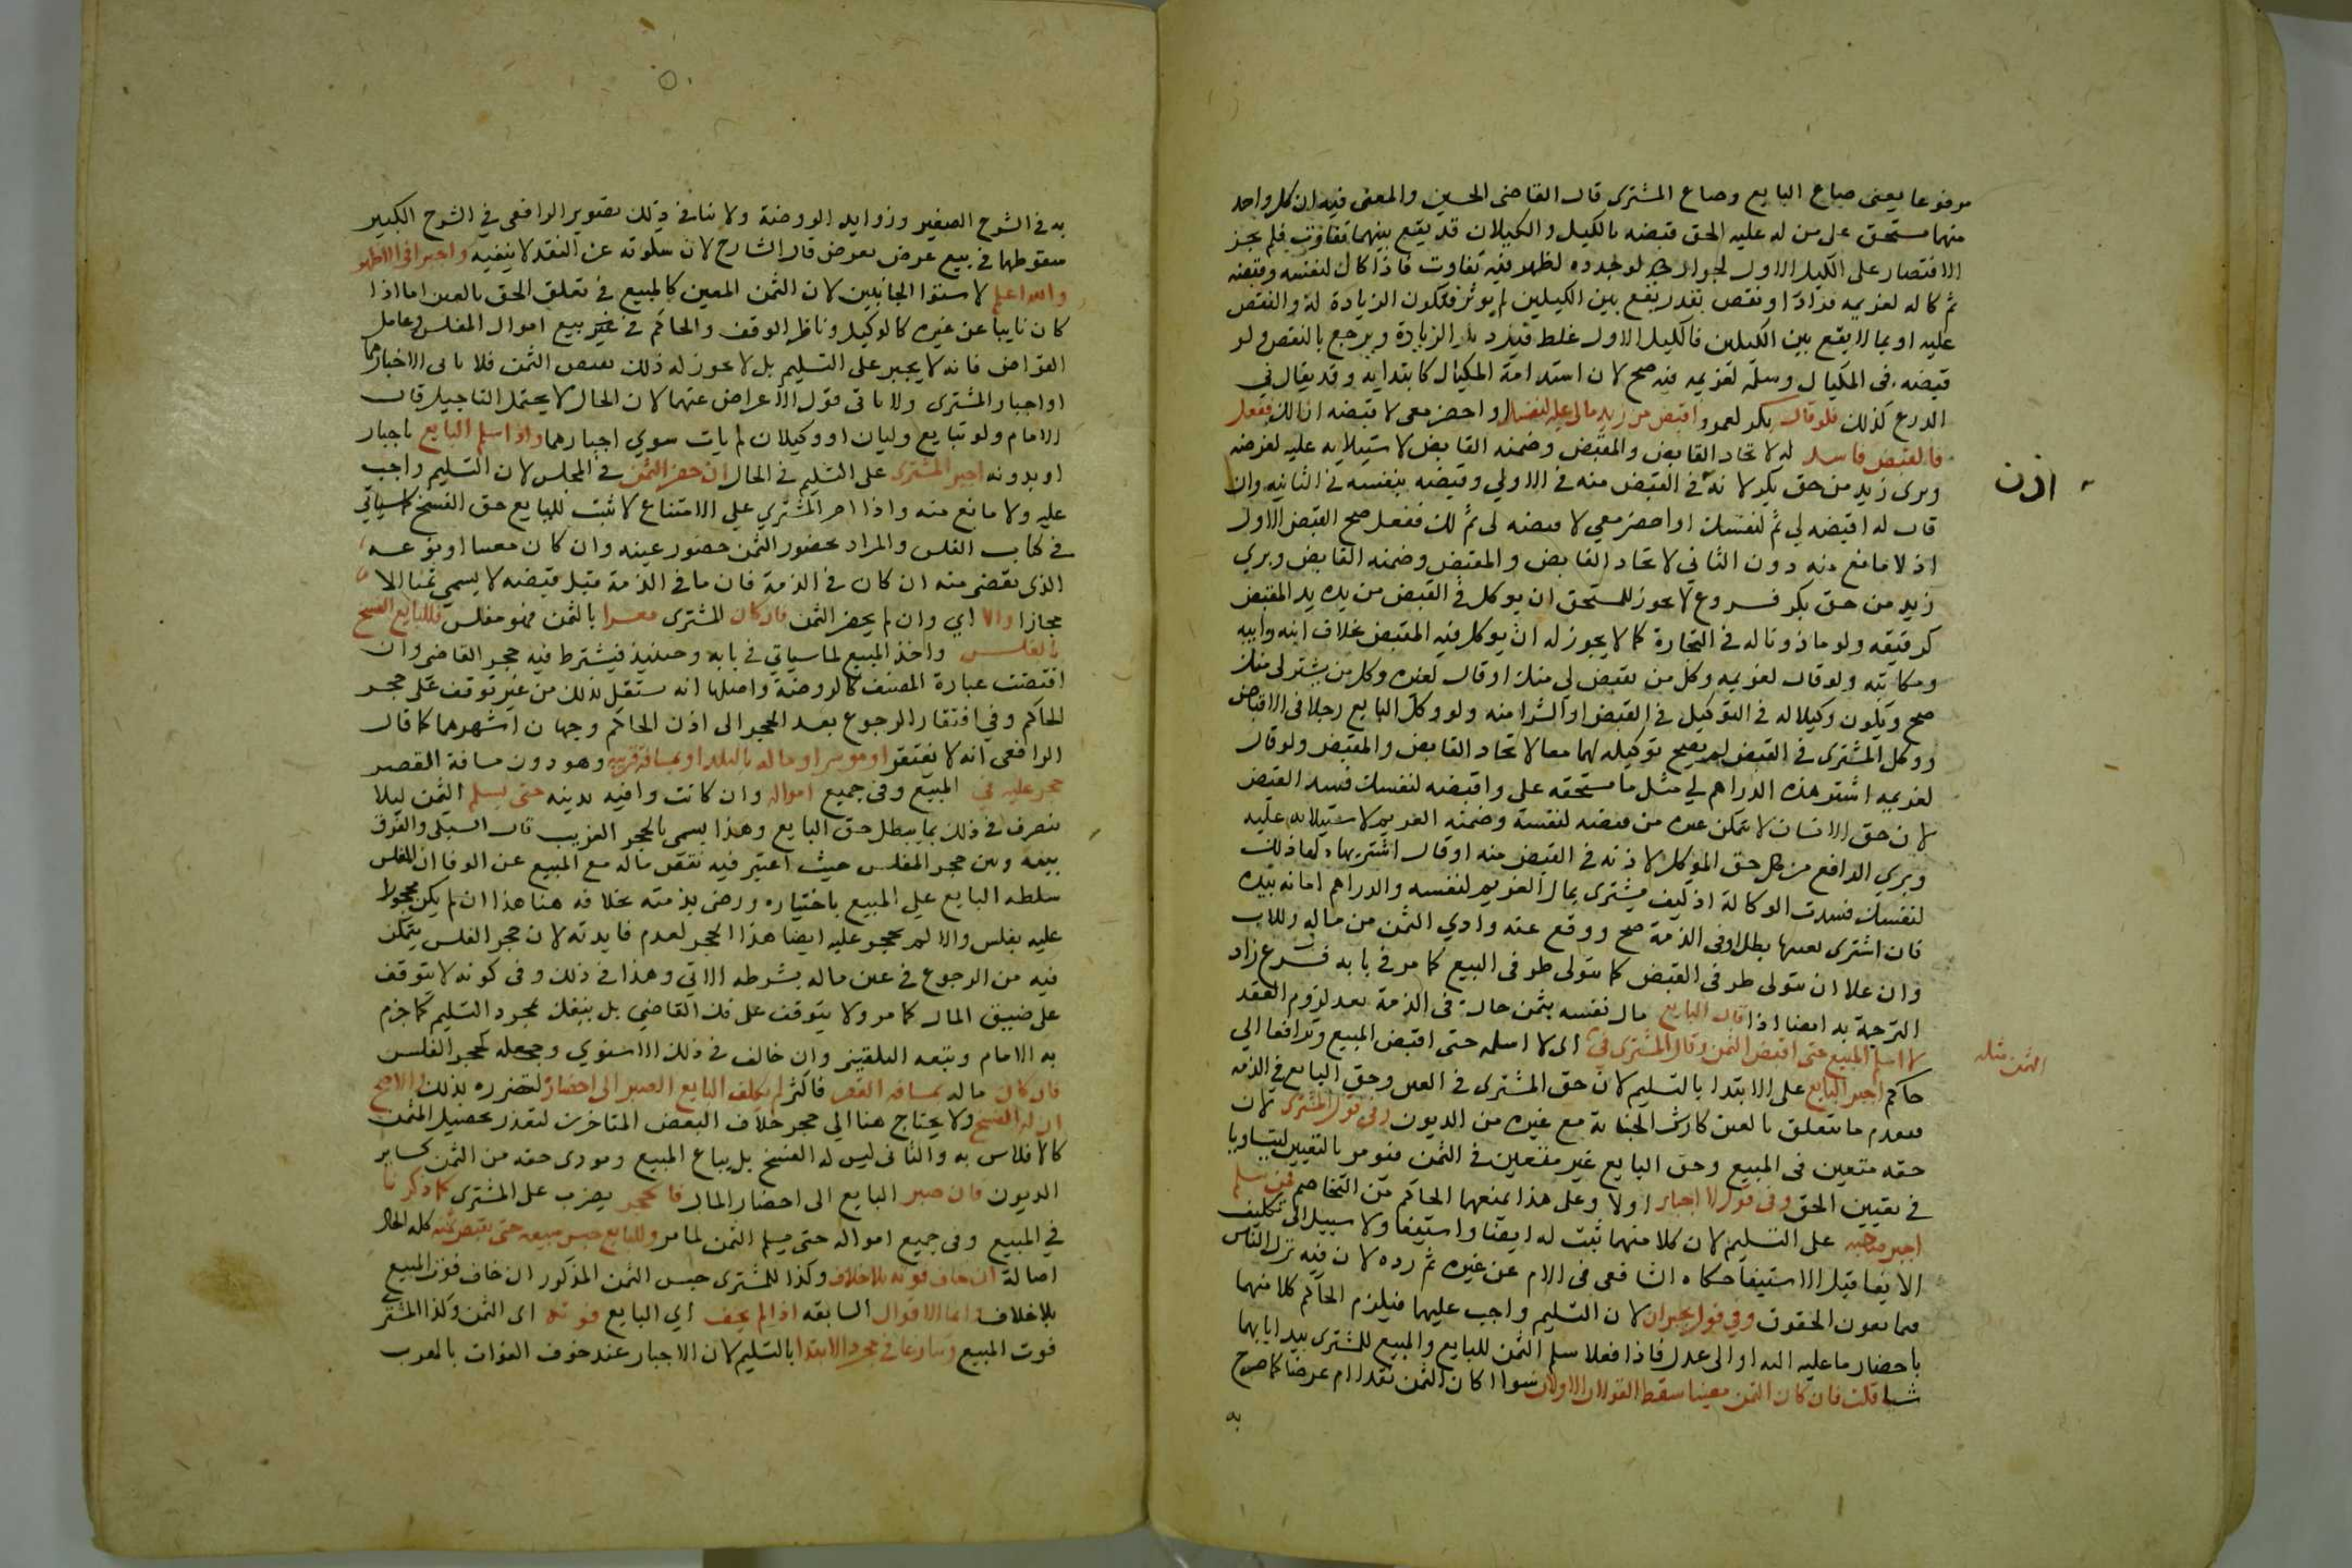 مرفوعا يعنى صاع البايع وصاع المشترى قال القاضى الحسين والمعنى فيه ان كل واحد
منهما مستحق على من له عليه الحق قبضه بالكيل والكيلان قد يقع بينهما تفاوت فلم يجز
الاقتصار على الكيل الاول لجواز لو جدده لظهر فيه تفاوت فاذا كال لنفسه وقبضه
ثم كاله لغريمه فزاد او نقص بقدر يقع بين الكيلين لم يوثر فتكون الزيادة له والنقص
عليه او بما لا يقع بين الكيلين فالكيل الاول غلط فيرد بكر الزيادة ويرجع بالنقص ولو
قبضه فى المكيال وسلمه لغريمه فيه صح لان استدامة المكيال كابتدايه وقد يقال فى
الذرع كذلك فلو قال بكر لعمرو اقبض من زيد مالى عليه لنفسك او احضر معى لا قبضه انا لك ففعل
فالقبض فاسد له لاتحاد القابض والمقبض وضمنه القابض لاستيلايه عليه لغرضه
وبرى زيد من حق بكر لانه فى القبض منه فى الاولي وقبضه بنفسه فى الثانيه وان
اذن
قال له اقبضه لي ثم لنفسك او احضر معي لا قبضه لى ثم لك ففعل صح القبض الاول
اذ لا مانع منه دون الثانى لاتحاد القابض والمقبض وضمنه القابض وبري
زيد من حق بكر فروع لا يجوز للمستحق ان يوكل فى القبض من يده يد المقبض
كرقيقه ولو ماذونا له فى التجارة كما لا يجوز له ان يوكل فيه المقبض بخلاف ابنه وابيه
ومكاتبه ولو قال لغريمه وكل من يقبض لى منك او قال لغيره وكل من يشتر لى منك
صح ويكون وكيلا له فى التوكيل فى القبض او الشرا منه ولو وكل البايع رجلا فى الاقباض
ووكل المشترى فى القبض لم يصح توكيله لهما معا لاتحاد القابض والمقبض ولو قال
لغريمه اشتر هذه الدراهم لي مثل ما مستحقه على واقبضه لنفسك فسد القبض
لان حق الانسان لا يتمكن غيره من قبضه لنفسه وضمنه الغريم لاستيلايه عليه
وبري الدافع من حق الموكل لاذنه فى القبض منه او قال اشتر بها ذلك
لنفسك فسدت الوكالة اذ كيف يشترى بمال الغريم لنفسه والدراهم امانه بيده
فان اشترى بعينها بطل او فى الذمة صح ووقع عنه وادي الثمن من ماله وللاب
وان علا ان يتولى طرفى القبض كما يتولى طرفى البيع كما مر فى بابه فرع زاد
الترجمة به ايضا اذا قال البايع مال نفسه بثمن حال فى الذمة بعد لزوم العقد
لا اسلم المبيع حتى اقبض الثمن وقال المشترى في الثمن مثله اى لا اسلمه حتى اقبض المبيع وترافعا الى
حاكم اجبر البايع على الابتدا بالتسليم لان حق المشترى فى العين وحق البايع فى الذمه
فيقدم ما يتعلق بالعين كارش الجناية مع غيره من الديون وفى قول المشترى لان
حقه متعين فى المبيع وحق البايع غير متعين فى الثمن فيومر بالتعيين ليتساويا
فى تعيين الحق وفى قول لا اجبار اولا وعلى هذا يمنعهما الحاكم من التخاصم فمن سلم
اجبر صاحبه على التسليم لان كلا منهما ثبت له ايفا واستيفا ولا سبيل الى تكليف
الايفا قبل الاستيفا حكاه الشافعى فى الام عن غيره ثم رده لان فيه ترك الناس
يتمانعون الحقوق وفي قول يجبران لان التسليم واجب عليهما فيلزم الحاكم كلا منهما
باحضار ما عليه اليه او الى عدل فاذا فعلا سلم الثمن للبايع والمبيع للمشترى يبدا بايهما
شا قلت فان كان الثمن معينا سقط القولان الاولان سوا اكان الثمن نقدا ام عرضا كما صرح
به
به فى الشرح الصغير وزوايد الروضة ولا ينافى ذلك تصوير الرافعى فى الشرح الكبير
سقوطهما فى بيع عرض بعرض قال الشارح لان سكوته عن النقد لا ينفيه واجبرا فى الاظهر
والله اعلم لاستوا الجانبين لان الثمن المعين كالمبيع فى تعلق الحق بالعين اما اذا
كان نايبا عن غيره كالوكيل وناظر الوقف والحاكم فى بيع اموال المفلس وعامل
القراض فانه لا يجبر على التسليم بل لا يجوز له ذلك حتى يقبض الثمن فلا ياتى الا اجبارهما
او اجبار المشترى ولا ياتى قول الاعراض عنهما لان الحال لا يحتمل التاجيل قال
الامام ولو تبايع وليان او وكيلان لم يات سوي اجبارهما واذا سلم البايع باجبار
او بدونه اجبر المشترى على التسليم فى الحال ان حضر الثمن فى المجلس لان التسليم واجب
عليه ولا مانع منه واذا اصر المشتري علي الامتناع لا يثبت للبايع حق الفسخ كما سياتي
فى كتاب الفلس والمراد بحضور الثمن حضور عينه وان كان معينا او نوعه
الذى يقضى منه ان كان فى الذمة فان ما فى الذمة قبل قبضه لا يسمى ثمنا الا
مجازا والا اي وان لم يحضر الثمن فان كان المشترى معسرا بالثمن فهو مفلس فللبايع الفسخ
بالفلس واخذ المبيع لما سياتي فى بابه وحينيذ فيشترط فيه حجر القاضى وان
اقتضت عبارة المصنف كالروضة واصلها انه يستقل بذلك من غير توقف على حجر
الحاكم وفي افتقار الرجوع بعد الحجر الى اذن الحاكم وجهان اشهرهما كما قال
الرافعى انه لا يفتقر او موسر او ماله بالبلد او بمسافة قريبه وهو دون مسافة القصر
حجر عليه فى المبيع وفى جميع امواله وان كانت وافيه بدينه حتى يسلم الثمن ليلا
يتصرف فى ذلك بما يبطل حق البايع وهذا يسمى بالحجر الغريب قال السبكى والفرق
بينه وبين حجر المفلس حيث اعتبر فيه نقص ماله مع المبيع عن الوفا ان المفلس
سلطه البايع علي المبيع باختياره ورضى بذمته بخلافه هنا هذا ان لم يكن محجورا
عليه بفلس والا لم يحجر عليه ايضا هذا الحجر لعدم فايدته لان حجر الفلس يتمكن
فيه من الرجوع فى عين ماله بشرطه الاتي وهذا فى ذلك وفى كونه لا يتوقف
على ضيق المال كما مر ولا يتوقف على فك القاضي بل ينفك بمجرد التسليم كما جزم
به الامام وتبعه البلقينى وان خالف فى ذلك الاسنوي وجعله كحجر الفلس
فان كان ماله بمسافه القصر فاكثر لم يكلف البايع الصبر الى احضاره لتضرره بذلك والاصح
ان له الفسخ ولا يحتاج هنا الي حجر خلاف البعض المتاخرين لتعذر تحصيل الثمن
كالافلاس به والثانى ليس له الفسخ بل يباع المبيع ويودى حقه من الثمن كساير
الديون فان صبر البايع الى احضار المال فالحجر يضرب على المشترى كما ذكرنا
في المبيع وفى جميع امواله حتى يسلم الثمن لما مر وللبايع حبس مبيعه حتى يقبض ثمنه كله الحال
اصالة ان خاف فوته بلا خلاف وكذا للمشترى حبس الثمن المذكور ان خاف فوت المبيع
بلا خلاف وانما الاقوال السابقه اذا لم يخف اي البايع فوته اى الثمن وكذا المشترى
فوت المبيع وتنازعا فى مجرد الابتدا بالتسليم لان الاجبار عند خوف الفوات بالهرب